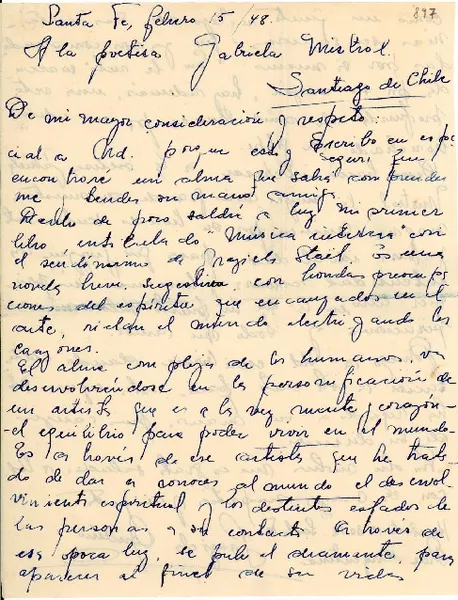 897
Santa Fe, febrero 15/48.
A la poetisa Gabriela Mistral.
Santiago de Chile
De mi mayor consideración y respeto:
Escribo en espe
cial a Ud. porque estoy segura que
encontraré un alma que sabrá comprender
me, tenderme mano amiga.
Dentro de poco saldrá a luz mi primer
libro intitulado "Música interna" con
el seudónimo de Graziela Staël. Es una
novela breve, sugestiva, con hondas preocupa
ciones del espíritu que encauzados en el
arte, el mundo electrizando los
corazones.
El alma compleja de los humanos, va
desenvolviéndose en la personificación de
un artista que es a la vez mente y corazón
el equilibrio para poder vivir en el mundo.
Es a través de ese artista que he trata
do de dar a conocer al mundo el desenvol
vimiento espiritual y los distintos estados de
las personas a su contacto. A través de
esa opaca luz, se pule el diamante, para
aparecer al final de su vida